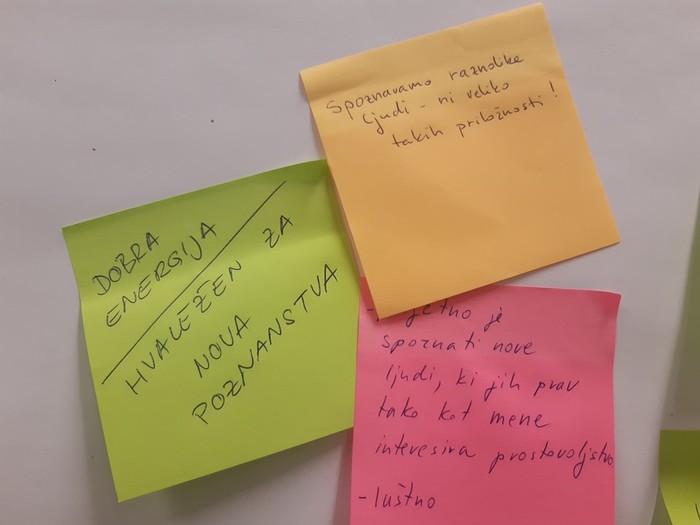 Spoznavamo raznolike
ljudi - ni veliko
takih priložnosti!
DOBRA
ENERGIJA
HVALEŽEN ZA
NOVA
POZNANSTVA
je
spoznati nove
ljudi, ki jih prav
tako kot mene
interesira prostovoljstvo
- luštno